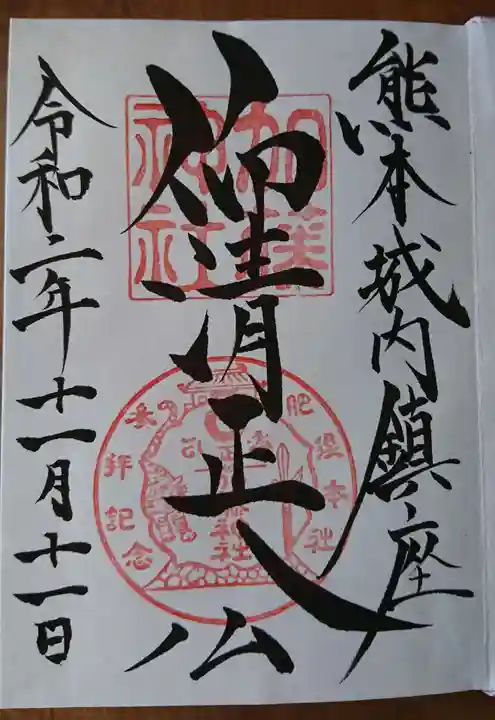 熊本城内鎮座
仰清正公
令和二年十一月十一日
加藤
神社
肥後本社
拝記念